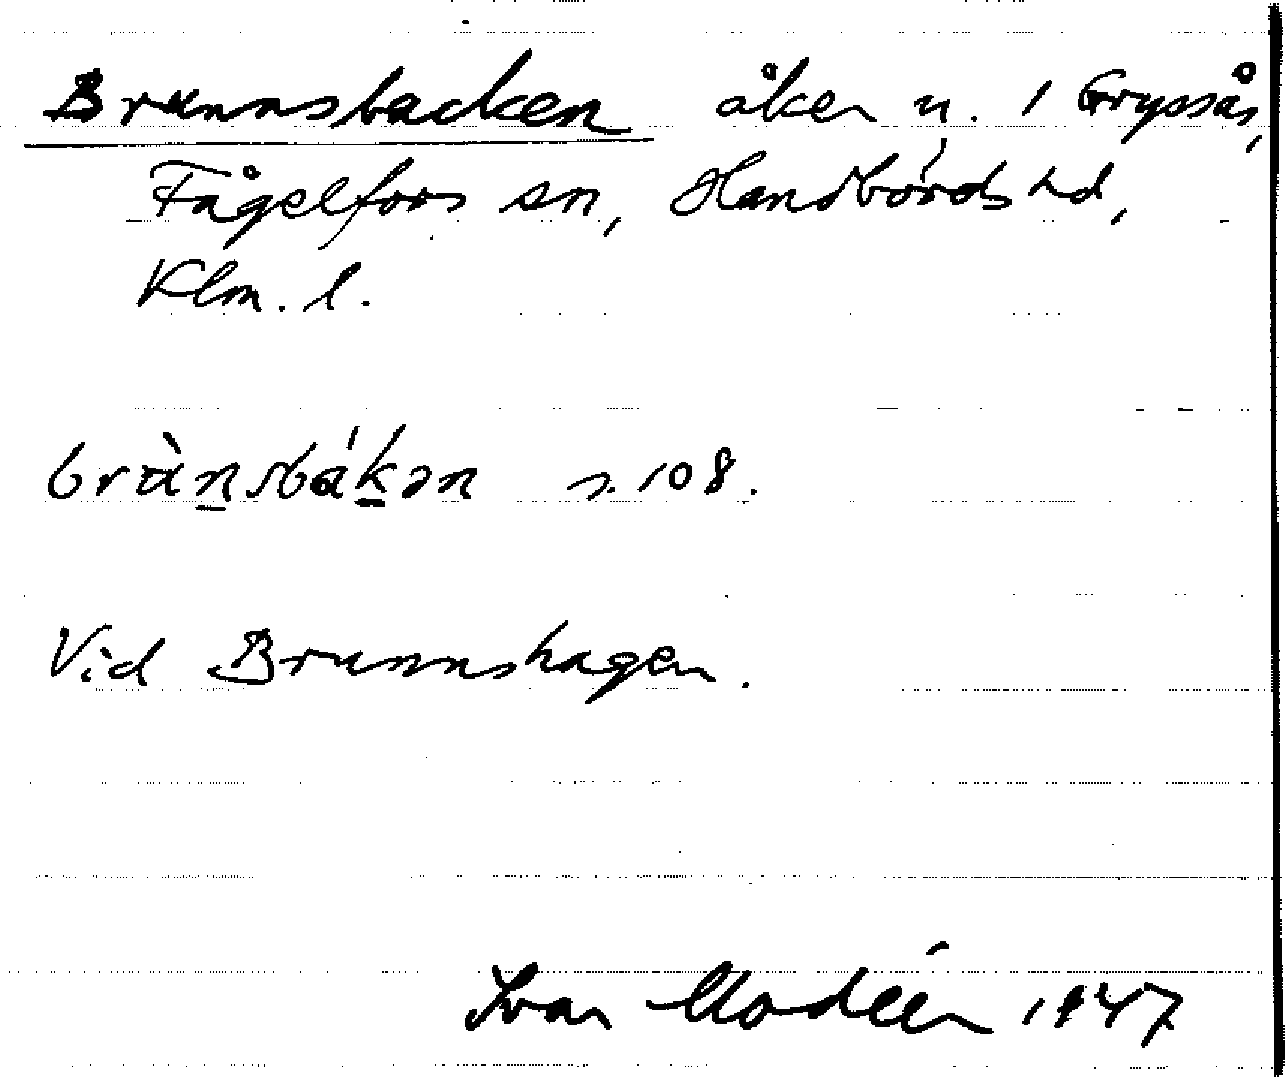 Brunnsbacken åker n. 1 Gryssås,
Fågelfors sn, Handbörds hd,
Klm. l.
bràn̲sbák̲ən s. 108.
Vid Brunnshagen.
Ivar Modéer 1947